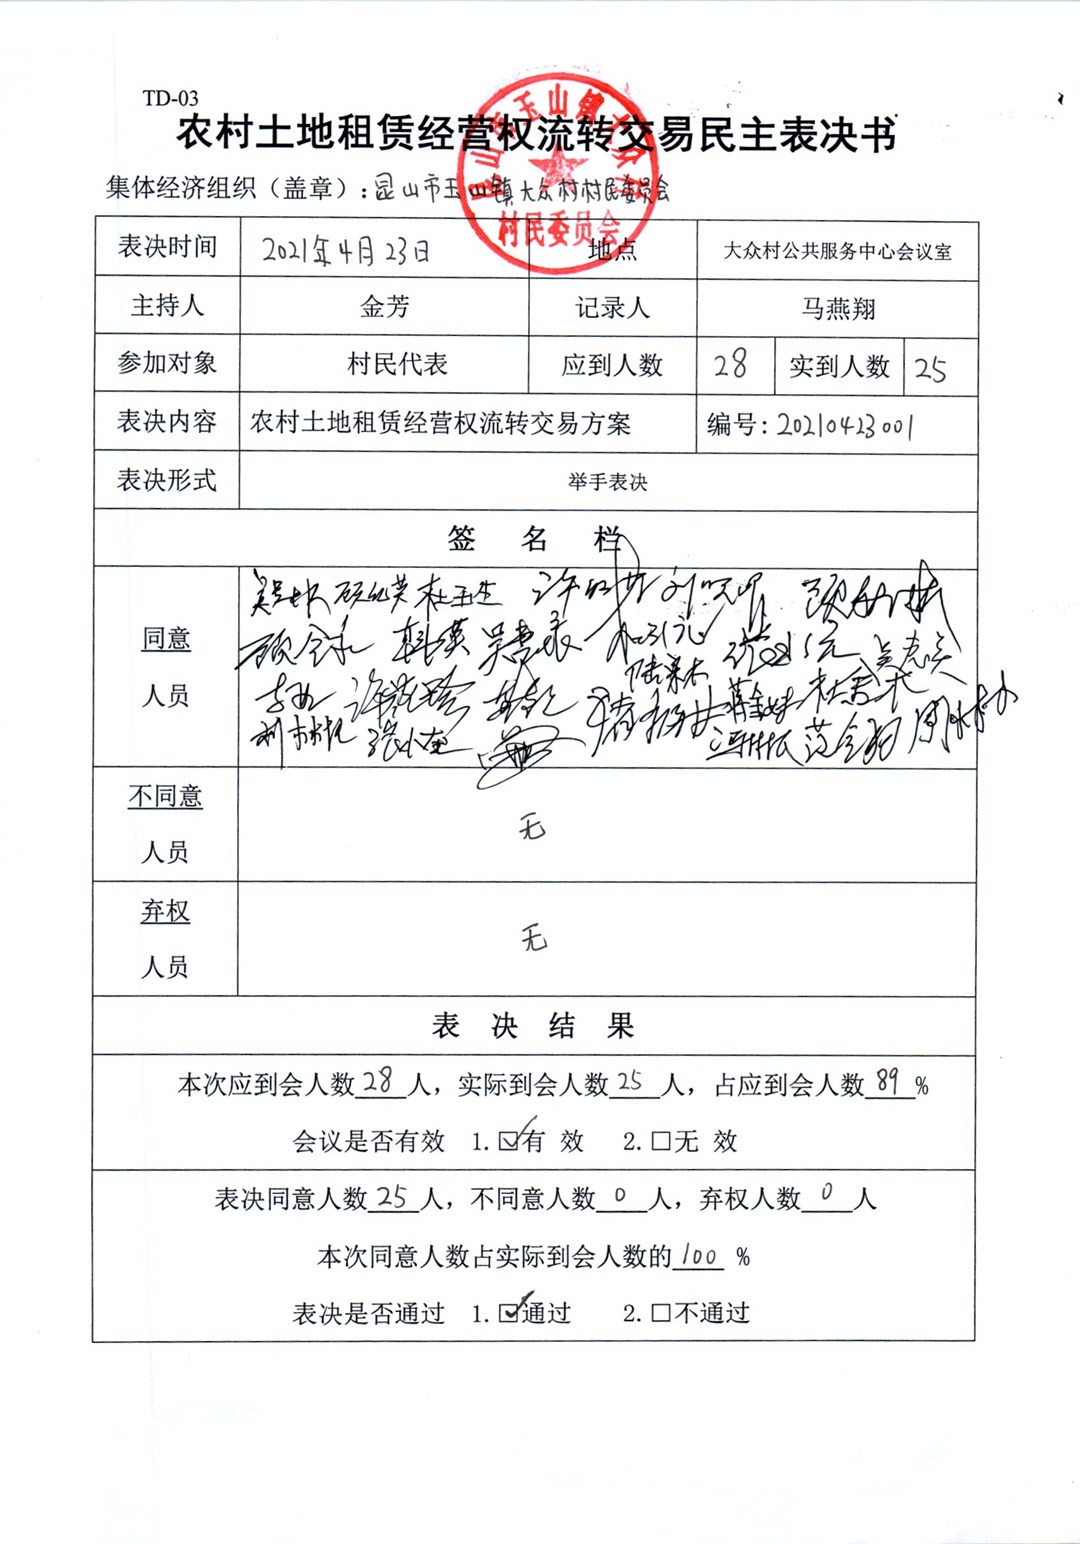 TD-03
农村土地租赁经营权流转交易民主表决书
集体经济组织（盖章）：昆山市玉山镇大众村村民委员会
昆山市玉山镇大众村
村民委员会
表决时间 2021年4月23日 地点 大众村公共服务中心会议室
主持人 金芳 记录人 马燕翔
参加对象 村民代表 应到人数 28 实到人数 25
表决内容 农村土地租赁经营权流转交易方案 编号：20210423001
表决形式 举手表决
签 名 栏
同意
人员
顾红英 杜玉生
韩瑛
张小奎
不同意
人员
无
弃权
人员
无
表 决 结 果
本次应到会人数28人，实际到会人数25人，占应到会人数89%
会议是否有效 1.☑有 效 2.□无 效
表决同意人数25人，不同意人数0人，弃权人数0人
本次同意人数占实际到会人数的100%
表决是否通过 1.☑通过 2.□不通过